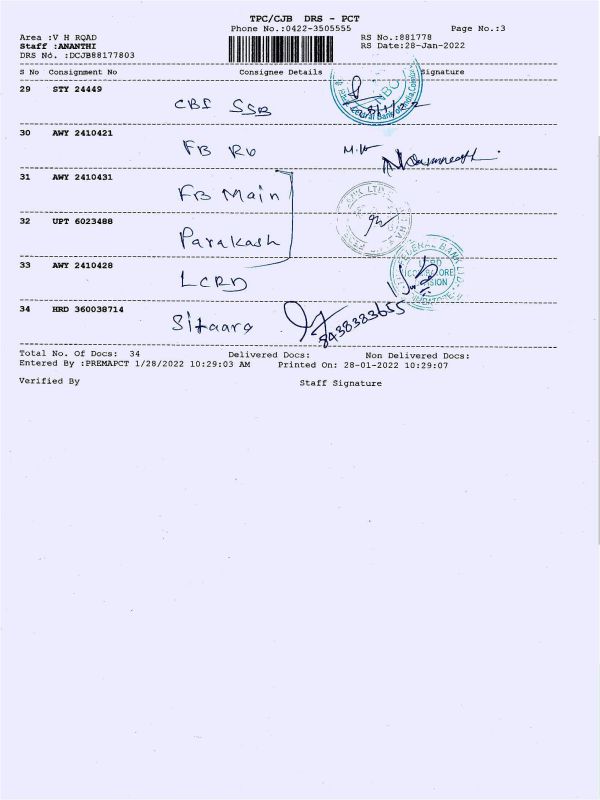 TPC/CJB DRS - PCT
Phone No.:0422-3505555 Page No.:3
Area :V H ROAD RS No.:881778
Staff :ANANTHI RS Date:28-Jan-2022
DRS No. :DCJB88177803
S No Consignment No Consignee Details Signature
29 STY 24449
CBI SSB
30 AWY 2410421
FB RO
31 AWY 2410431
FB Main
32 UPT 6023488
Parakash
33 AWY 2410428
LCRD
FEDERAL BANK LTD.
LCRD
COIMBATORE
DIVISION
34 HRD 360038714
Sitaara 8438383655
Total No. Of Docs: 34 Delivered Docs: Non Delivered Docs:
Entered By :PREMAPCT 1/28/2022 10:29:03 AM Printed On: 28-01-2022 10:29:07
Verified By Staff Signature